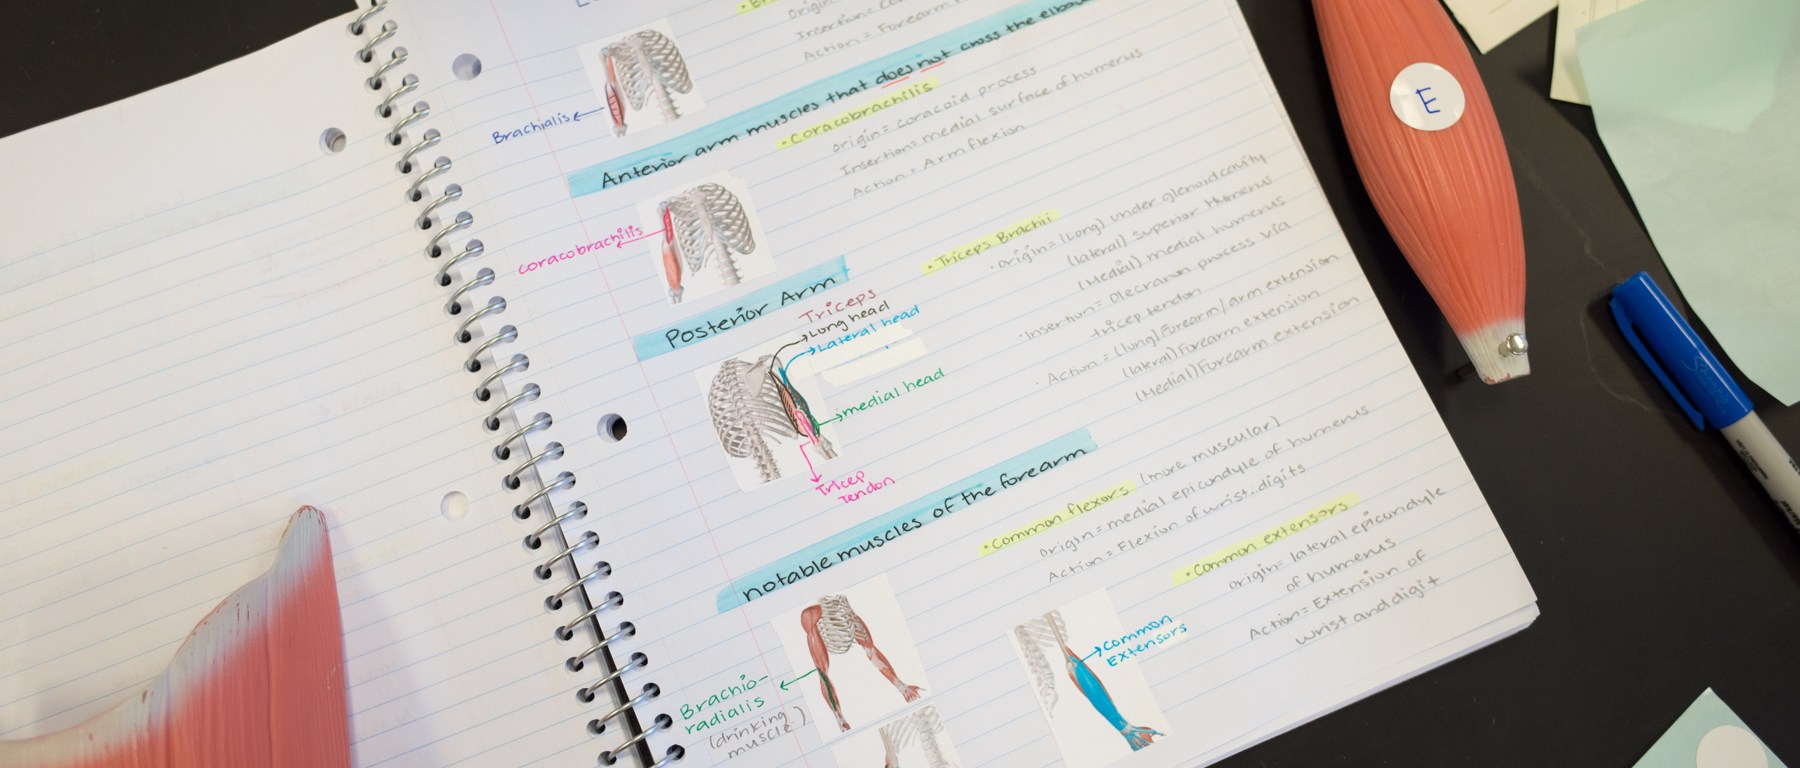 Origin
Insertion= Co
Action = Forearm
Brachialis
Anterior arm muscles that does not cross the elbow
• Coracobrachilis
Origin= coracoid process
Insertion= medial surface of humerus
Action = Arm flexion
coracobrachilis
Posterior Arm
• Triceps Brachii
• origin= (Long) under glenoid cavity
(lateral) superior Humerus
(Medial) medial humerus
• Insertion= Olecranon process via
tricep tendon
• Action = (long) Forearm/arm extension
(lateral) Forearm extension
(Medial) Forearm extension
Triceps
Long head
Lateral head
medial head
Tricep
Tendon
notable muscles of the forearm
• Common flexors (more muscular)
Origin= medial epicondyle of humerus
Action= Flexion of wrist..digits
• Common extensors
origin= lateral epicondyle
of humerus
Action= Extension of
wrist and digit
Common
Extensors
Brachio-
radialis
(drinking
muscle)
E
Sharpie